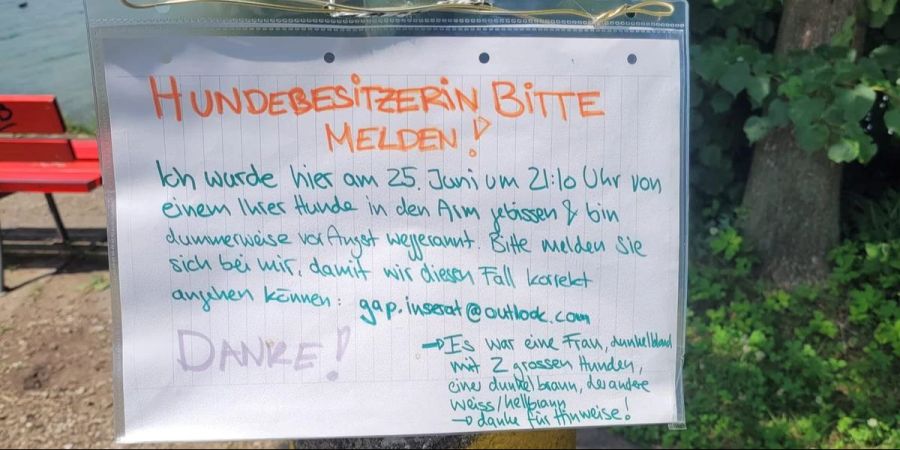 HUNDEBESITZERIN BITTE
MELDEN!
Ich wurde hier am 25. Juni um 21:10 Uhr von
einem Ihrer Hunde in den Arm gebissen & bin
dummerweise vor Angst weggerannt. Bitte melden Sie
sich bei mir, damit wir diesen Fall korrekt
angehen können: gap.inserat@outlook.com
DANKE!
→ Es war eine Frau, dunkelblond
mit 2 grossen Hunden,
einer dunkelbraun, der andere
weiss/hellbraun
→ danke für Hinweise!